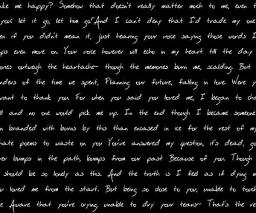 ke me happy? Somehow that doesn't really matter much to me, even t
you! let it go, let him go! And I can't deny that I'd trade my one
en if you didn't mean it, just hearing your voice saying those words I
ps even move on Your voice however will echo in my heart till the day
ones outweigh the heartache- though the memories burn me, scalding. But
nders of the time we spent, Planning our future, falling in love. Were y
want to thank you. For when you said you loved me, I began to cha
and no one would pick me up. In the end though I became someone
branded with burns by this than encased in ice for the rest of my
nate poems to waste on you You've answered my question, it's dead, go
ver bumps in the path, bumps from our past Because of you Though
should be so lonely as this And the truth is I feel as if dying
u loved me from the start. But being so close to you, unable to touch
Aware that you're crying, unable to dry your tears- That's the ve